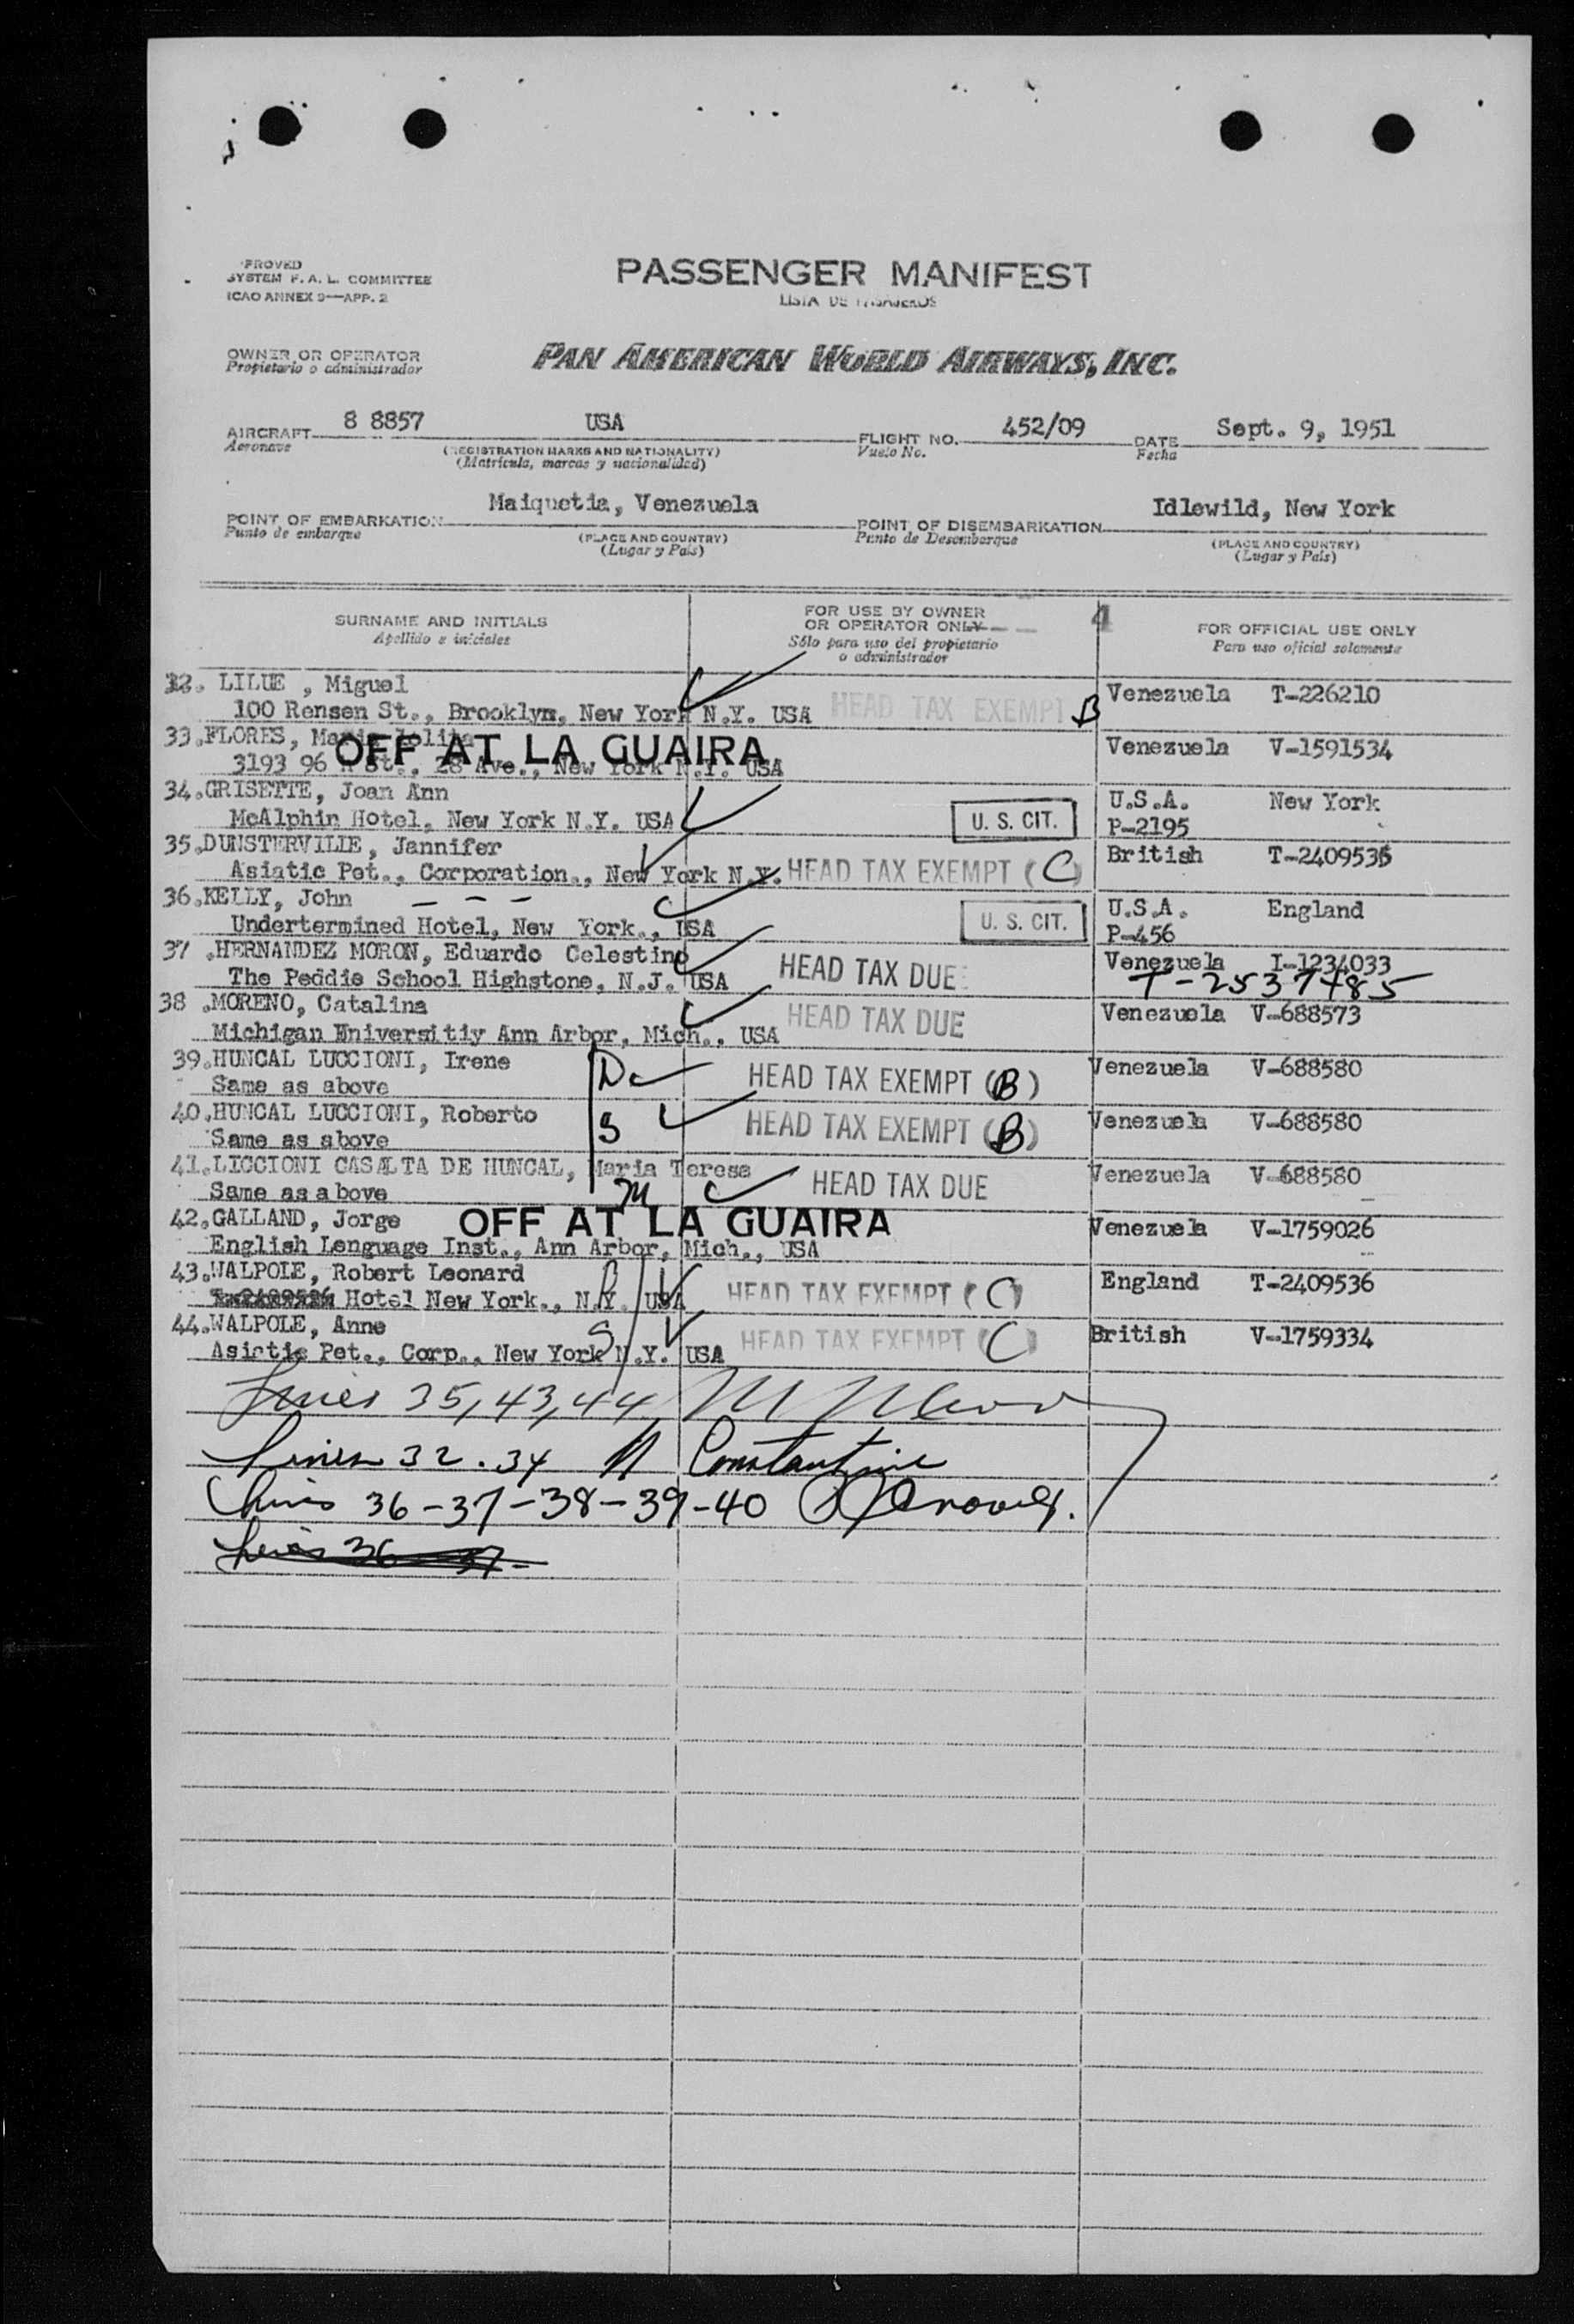 PROVED
SYSTEM F. A. L. COMMITTEE
ICAO ANNEX 9—APP. 2
PASSENGER MANIFEST
LISTA DE PASAJEROS
OWNER OR OPERATOR
Propietario o administrador
PAN AMERICAN WORLD AIRWAYS, INC.
AIRCRAFT 8 8857 USA FLIGHT NO. 452/09 DATE Sept. 9, 1951
Aeronave (REGISTRATION MARKS AND NATIONALITY) Vuelo No. Fecha
(Matricula, marcas y nacionalidad)
POINT OF EMBARKATION Maiquetia, Venezuela POINT OF DISEMBARKATION Idlewild, New York
Punto de embarque (PLACE AND COUNTRY) Punto de Desembarque (PLACE AND COUNTRY)
(Lugar y País) (Lugar y País)
SURNAME AND INITIALS FOR USE BY OWNER OR OPERATOR ONLY 4 FOR OFFICIAL USE ONLY
Apellido e iniciales Sólo para uso del propietario o administrador Para uso oficial solamente
32. LILUE , Miguel Venezuela T-226210
100 Rensen St., Brooklyn, New York N.Y. USA HEAD TAX EXEMPT B
33.FLORES, Maria Lolita Venezuela V-1591534
OFF AT LA GUAIRA
3193 96 St., 28 Ave., New York N.Y. USA
34.GRISETTE, Joan Ann U.S.A. New York
McAlphin Hotel, New York N.Y. USA U. S. CIT. P-2195
35.DUNSTERVILIE, Jannifer British T-2409535
Asiatic Pet., Corporation., New York N.Y. HEAD TAX EXEMPT (C)
36.KELLY, John - - - U.S.A. England
Undertermined Hotel, New York., USA U. S. CIT. P-456
37 .HERNANDEZ MORON, Eduardo Celestino Venezuela I-1234033
The Peddie School Highstone, N.J. USA HEAD TAX DUE T-2537485
38 .MORENO, Catalina Venezuela V-688573
Michigan Eniversitiy Ann Arbor, Mich., USA HEAD TAX DUE
39.HUNCAL LUCCIONI, Irene D HEAD TAX EXEMPT (B) Venezuela V-688580
Same as above
40.HUNCAL LUCCIONI, Roberto S HEAD TAX EXEMPT (B) Venezuela V-688580
Same as above
41.LICCIONI CASALTA DE HUNCAL, Maria Teresa HEAD TAX DUE Venezuela V-688580
Same as above M
42.GALLAND, Jorge OFF AT LA GUAIRA Venezuela V-1759026
English Lenguage Inst., Ann Arbor, Mich., USA
43.WALPOLE, Robert Leonard England T-2409536
Hotel New York., N.Y. USA HEAD TAX EXEMPT (C)
44.WALPOLE, Anne S British V-1759334
Asiatic Pet., Corp., New York N.Y. USA HEAD TAX EXEMPT (C)
Lines 35,43,44,
Lines 32.34 N Constantine
Lines 36-37-38-39-40
Lines 36 37-